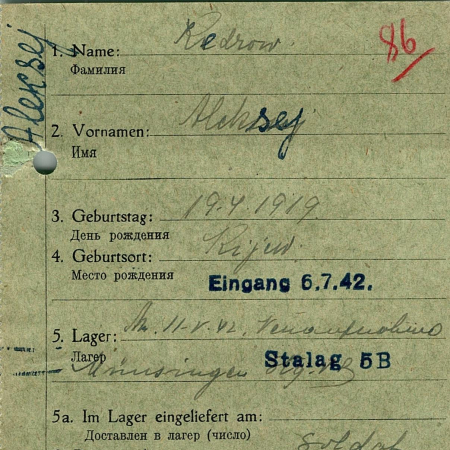 Aleksej
1. Name: Kedrow. 86
Фамилия
2. Vornamen: Aleksej
Имя
3. Geburtstag: 19.4.1919
День рождения
4. Geburtsort: Kijew.
Место рождения
Eingang 6.7.42.
5. Lager:
Лагер Stalag 5B
Münsingen
5a. Im Lager eingeliefert am:
Доставлен в лагер (число)
Soldat